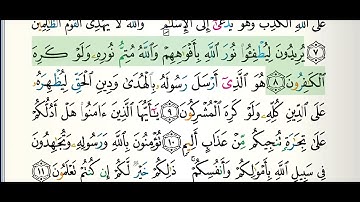 عَلَى ٱللَّهِ ٱلْكَذِبَ وَهُوَ يُدْعَىٰٓ إِلَى ٱلْإِسْلَٰمِ ۚ وَٱللَّهُ لَا يَهْدِى ٱلْقَوْمَ ٱلظَّٰلِمِينَ
٧ يُرِيدُونَ لِيُطْفِـُٔوا۟ نُورَ ٱللَّهِ بِأَفْوَٰهِهِمْ وَٱللَّهُ مُتِمُّ نُورِهِۦ وَلَوْ كَرِهَ
ٱلْكَٰفِرُونَ ٨ هُوَ ٱلَّذِىٓ أَرْسَلَ رَسُولَهُۥ بِٱلْهُدَىٰ وَدِينِ ٱلْحَقِّ لِيُظْهِرَهُۥ
عَلَى ٱلدِّينِ كُلِّهِۦ وَلَوْ كَرِهَ ٱلْمُشْرِكُونَ ٩ يَٰٓأَيُّهَا ٱلَّذِينَ ءَامَنُوا۟ هَلْ أَدُلُّكُمْ
عَلَىٰ تِجَٰرَةٍ تُنجِيكُم مِّنْ عَذَابٍ أَلِيمٍ ١٠ تُؤْمِنُونَ بِٱللَّهِ وَرَسُولِهِۦ وَتُجَٰهِدُونَ
فِى سَبِيلِ ٱللَّهِ بِأَمْوَٰلِكُمْ وَأَنفُسِكُمْ ۚ ذَٰلِكُمْ خَيْرٌ لَّكُمْ إِن كُنتُمْ تَعْلَمُونَ ١١